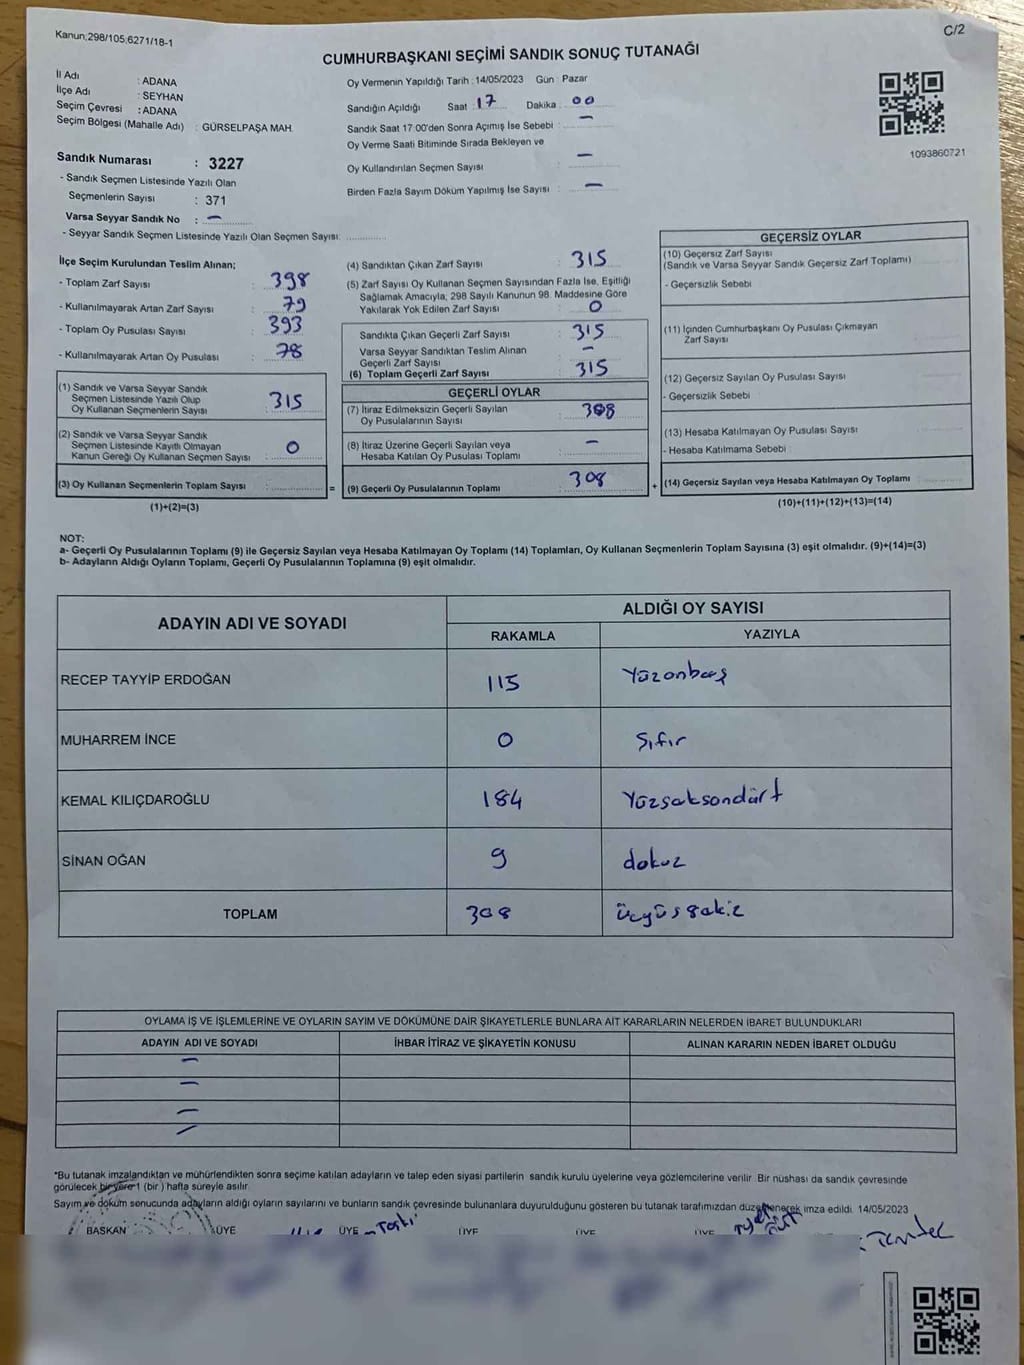 Kanun;298/105;6271/18-1
C/2
CUMHURBAŞKANI SEÇİMİ SANDIK SONUÇ TUTANAĞI
İl Adı : ADANA
İlçe Adı : SEYHAN
Seçim Çevresi : ADANA
Seçim Bölgesi (Mahalle Adı) : GÜRSELPAŞA MAH.
Sandık Numarası : 3227
- Sandık Seçmen Listesinde Yazılı Olan
Seçmenlerin Sayısı : 371
Varsa Seyyar Sandık No : –
- Seyyar Sandık Seçmen Listesinde Yazılı Olan Seçmen Sayısı: ............
Oy Vermenin Yapıldığı Tarih : 14/05/2023 Gün : Pazar
Sandığın Açıldığı Saat : 17 Dakika : 00
Sandık Saat 17:00'den Sonra Açımış İse Sebebi : –
Oy Verme Saati Bitiminde Sırada Bekleyen ve
Oy Kullandırılan Seçmen Sayısı : –
Birden Fazla Sayım Döküm Yapılmış İse Sayısı : –
1093860721
İlçe Seçim Kurulundan Teslim Alınan;
- Toplam Zarf Sayısı : 398
- Kullanılmayarak Artan Zarf Sayısı : 79
- Toplam Oy Pusulası Sayısı : 393
- Kullanılmayarak Artan Oy Pusulası : 78
(1) Sandık ve Varsa Seyyar Sandık
Seçmen Listesinde Yazılı Olup
Oy Kullanan Seçmenlerin Sayısı : 315
(2) Sandık ve Varsa Seyyar Sandık
Seçmen Listesinde Kayıtlı Olmayan
Kanun Gereği Oy Kullanan Seçmen Sayısı : 0
(3) Oy Kullanan Seçmenlerin Toplam Sayısı : ............ =
(1)+(2)=(3)
(4) Sandıktan Çıkan Zarf Sayısı : 315
(5) Zarf Sayısı Oy Kullanan Seçmen Sayısından Fazla İse, Eşitliği
Sağlamak Amacıyla, 298 Sayılı Kanunun 98. Maddesine Göre
Yakılarak Yok Edilen Zarf Sayısı : 0
Sandıkta Çıkan Geçerli Zarf Sayısı : 315
Varsa Seyyar Sandıktan Teslim Alınan
Geçerli Zarf Sayısı : –
(6) Toplam Geçerli Zarf Sayısı : 315
GEÇERLİ OYLAR
(7) İtiraz Edilmeksizin Geçerli Sayılan
Oy Pusulalarının Sayısı : 308
(8) İtiraz Üzerine Geçerli Sayılan veya
Hesaba Katılan Oy Pusulası Toplamı : –
(9) Geçerli Oy Pusulalarının Toplamı : 308 +
GEÇERSİZ OYLAR
(10) Geçersiz Zarf Sayısı
(Sandık ve Varsa Seyyar Sandık Geçersiz Zarf Toplamı)
- Geçersizlik Sebebi
(11) İçinden Cumhurbaşkanı Oy Pusulası Çıkmayan
Zarf Sayısı
(12) Geçersiz Sayılan Oy Pusulası Sayısı
- Geçersizlik Sebebi
(13) Hesaba Katılmayan Oy Pusulası Sayısı
- Hesaba Katılmama Sebebi
(14) Geçersiz Sayılan veya Hesaba Katılmayan Oy Toplamı
(10)+(11)+(12)+(13)=(14)
NOT:
a- Geçerli Oy Pusulalarının Toplamı (9) ile Geçersiz Sayılan veya Hesaba Katılmayan Oy Toplamı (14) Toplamları, Oy Kullanan Seçmenlerin Toplam Sayısına (3) eşit olmalıdır. (9)+(14)=(3)
b- Adayların Aldığı Oyların Toplamı, Geçerli Oy Pusulalarının Toplamına (9) eşit olmalıdır.
ADAYIN ADI VE SOYADI ALDIĞI OY SAYISI
RAKAMLA YAZIYLA
RECEP TAYYİP ERDOĞAN 115 Yüzonbeş
MUHARREM İNCE 0 Sıfır
KEMAL KILIÇDAROĞLU 184 Yüzseksendört
SİNAN OĞAN 9 dokuz
TOPLAM 308 üçyüssekiz
OYLAMA İŞ VE İŞLEMLERİNE VE OYLARIN SAYIM VE DÖKÜMÜNE DAİR ŞİKAYETLERLE BUNLARA AİT KARARLARIN NELERDEN İBARET BULUNDUKLARI
ADAYIN ADI VE SOYADI İHBAR İTİRAZ VE ŞİKAYETİN KONUSU ALINAN KARARIN NEDEN İBARET OLDUĞU
–
–
–
–
*Bu tutanak imzalandıktan ve mühürlendikten sonra seçime katılan adayların ve talep eden siyasi partilerin sandık kurulu üyelerine veya gözlemcilerine verilir. Bir nüshası da sandık çevresinde
görülecek bir yere 1 (bir ) hafta süreyle asılır.
Sayım ve döküm sonucunda adayların aldığı oyların sayılarını ve bunların sandık çevresinde bulunanlara duyurulduğunu gösteren bu tutanak tarafımızdan düzenlenerek imza edildi. 14/05/2023
BAŞKAN ÜYE ÜYE ÜYE ÜYE ÜYE